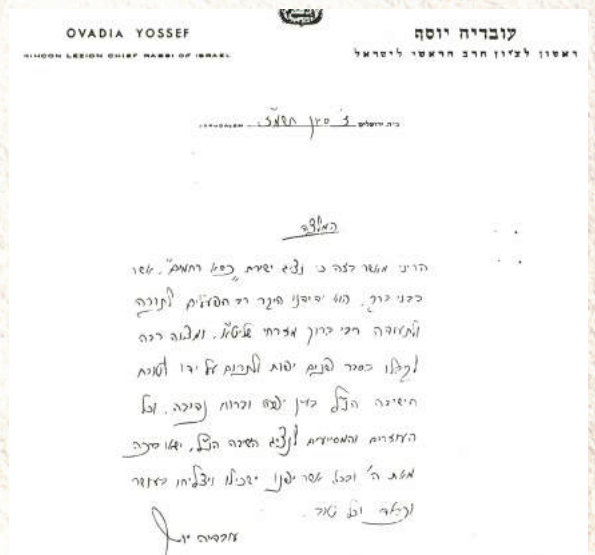 OVADIA YOSSEF
RISHON LEZION CHIEF RABBI OF ISRAEL
עובדיה יוסף
ראשון לציון הרב הראשי לישראל
JERUSALEM ז' סיון תשמ"ז ירושלים
המלצה
הריני מאשר בזה כי נציג ישיבת "כסא רחמים", אשר
בבני ברק, הוא ידידנו היקר רב הפעלים לתורה
ולתעודה רבי ברוך מזרחי שליט"א, ומצוה רבה
לקבלו בסבר פנים יפות ולתרום על ידו לטובת
הישיבה הנ"ל בעין יפה וברוח נדיבה, וכל
העוזרים והמסייעים לנציג הישיבה הנ"ל, ישאו ברכה
מאת ה' ובכל אשר יפנו ישכילו ויצליחו בעושר
וכבוד וכל טוב.
עובדיה יוסף